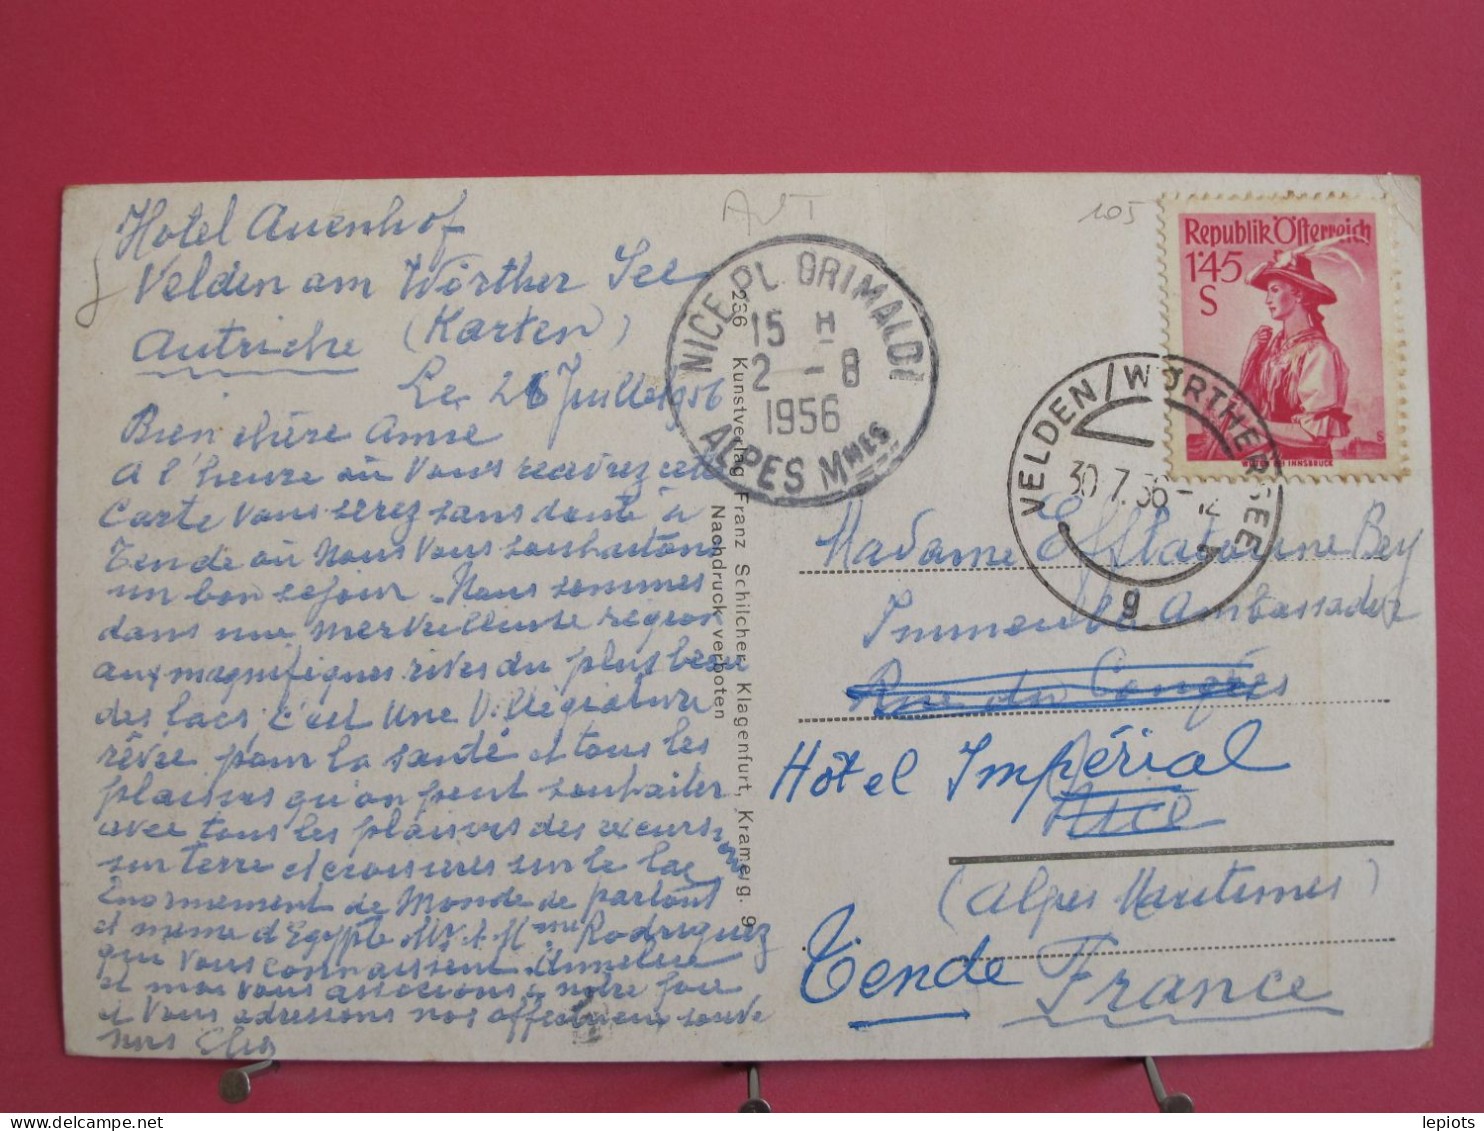 AUT
105
Hotel Auenhof
Velden am Wörther See
Autriche (Karten)
Le 26 Juillet 1956
Bien chère Amie
A l'heure où Vous recevrez cette
Carte Vous serez sans doute à
Tende où Nous Vous souhaitons
un bon sejour. Nous sommes
dans une merveilleuse region
aux magnifiques rives du plus beau
des lacs, c'est Une Villégiature
rêvée pour la santé et tous les
plaisirs qu'on peut souhaiter
avec tous les plaisirs des excursions
sur terre et croisieres sur le lac
Enormement de Monde de partout
et meme d'Egypte Mr & Mme Rodriguez
qui Vous connaissent. Anneliese
et moi vous associons à notre joie
et Vous adressons nos affectueux souve
nirs
236 Kunstverlag Franz Schilcher, Klagenfurt, Kramerg. 9
Nachdruck verboten
NICE PL. GRIMALDI
15 H
2 - 8
1956
ALPES Mmes
Republik Österreich
1'45
S
INNSBRUCK
VELDEN/WÖRTHERSEE
30.7.56-12
g
Madame Efflatoun Bey
Immeuble Ambassador
Rue du Congrès
Hôtel Impérial
Nice
(Alpes Maritimes)
Tende France
lepiots